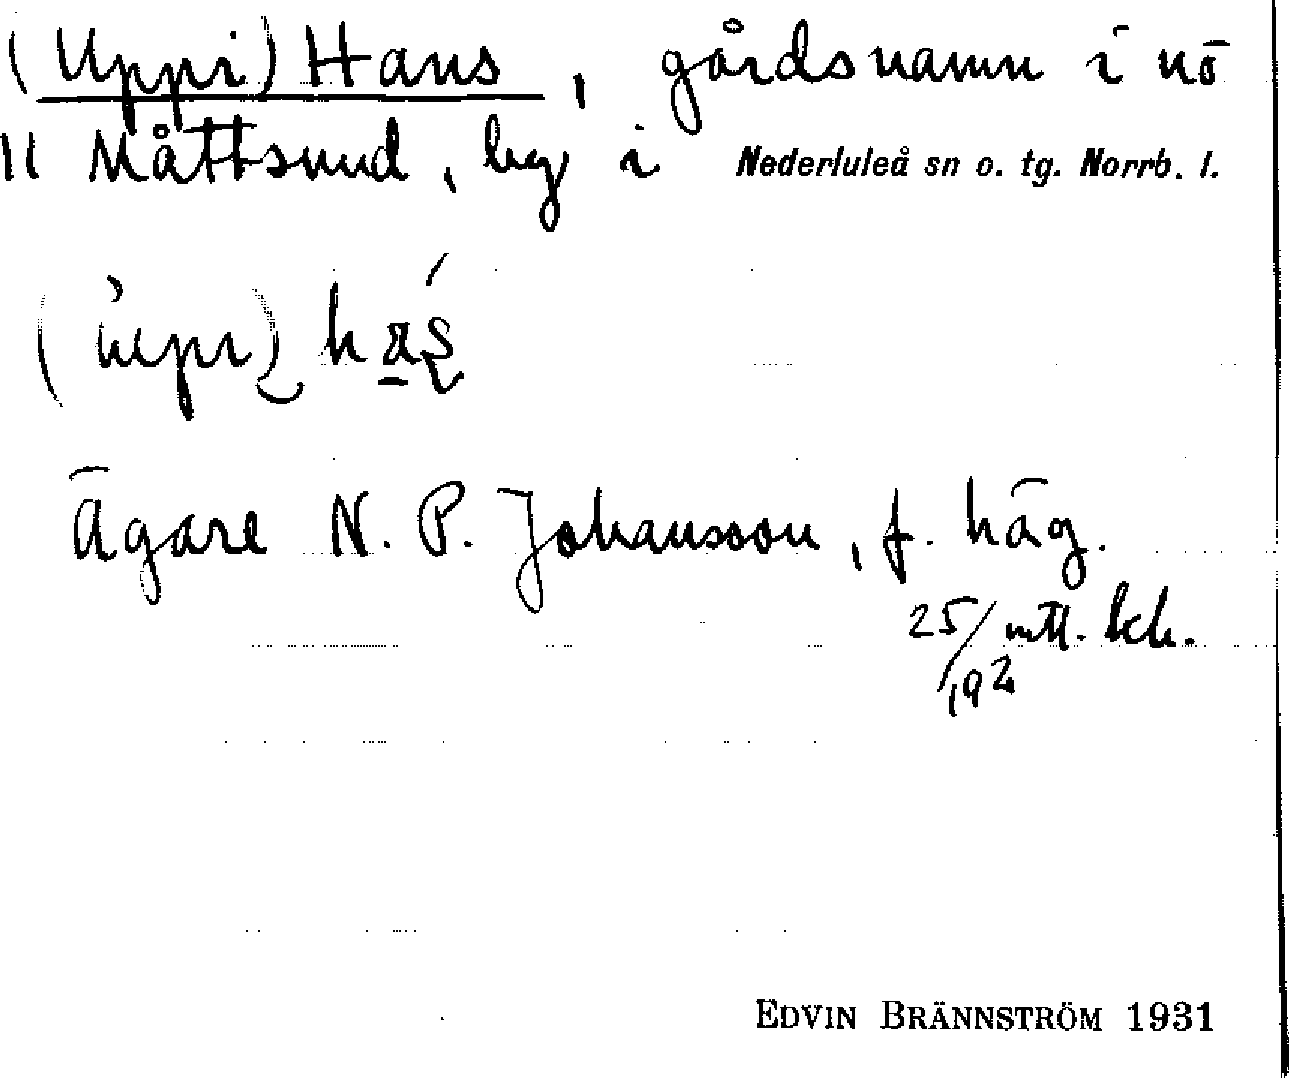 (Uppi) Hans, gårdsnamn i nö
Måttsund, by i Nederluleå sn o. tg. Norrb. l.
Ägare N. P. Johansson, f. häg.
25/192 mtl. kch.
EDVIN BRÄNNSTRÖM 1931